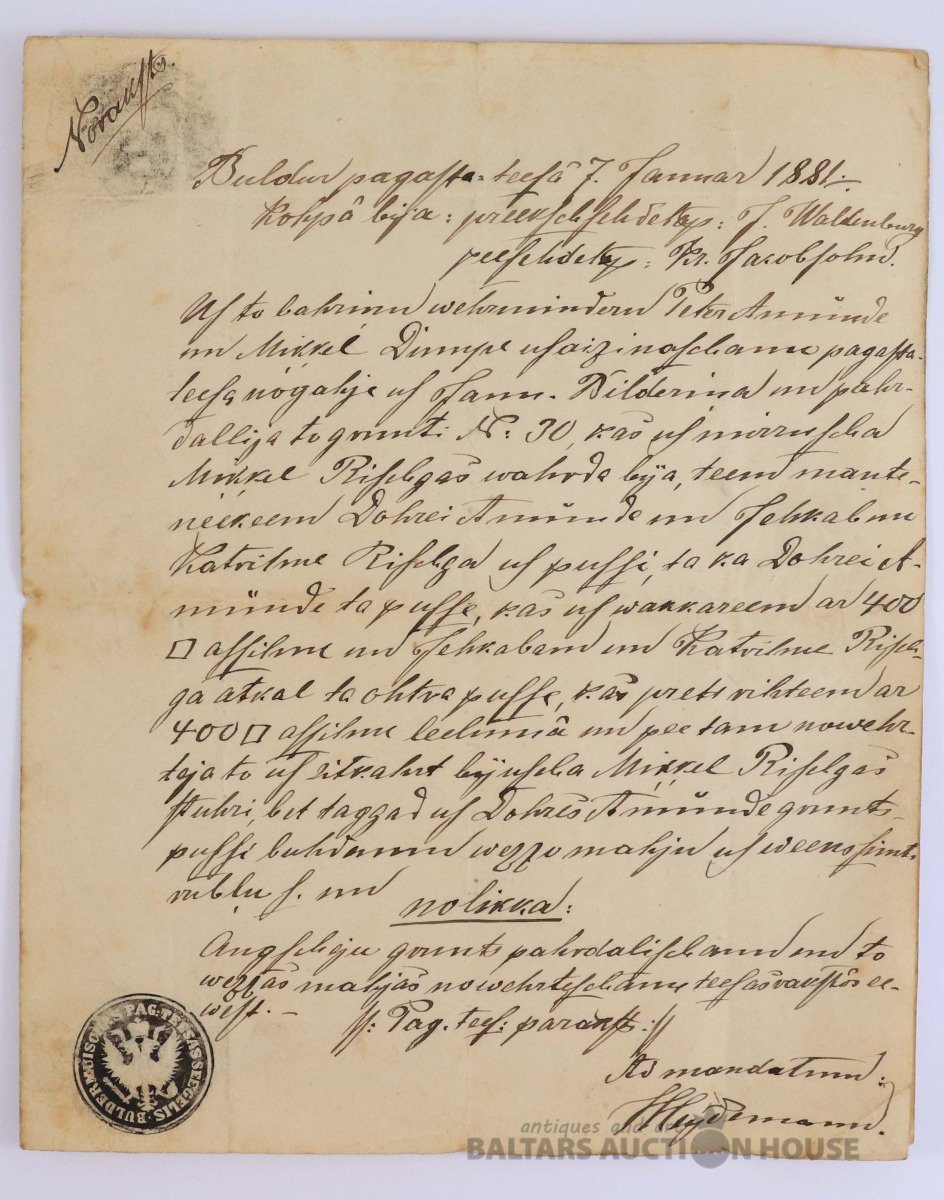 Norakst.
Buldur pagasta-teesâ 7. Januar 1881.
Kohpâ bija: preekschsehdetajs: J. Waldenburg
peesehdetajs: Kr. Jacobsohn.
Us to bahrinu wehrminderu Peter Amünde
un Mikkel Dumpe usaizinaschanu pagasta-
teesa nogahje us Jann. Bilderina un pahr-
dallija to grunti N: 30, kas us mirruscha
Mikkel Rischgas wahrda bija, teem mante-
neekeem Dohrei Amünde un Jehkabam un
Katrihne Rischga us pussi, ta ka Dohrei A-
münde ta pusse, kas us wakkareem ar 400
□ assihm un Jehkabam un Katrihne Risch-
ga atkal ta ohtra pusse, kas pretí rihteem ar
400 □ assihm leelumâ un pee tam nowehr-
teja to us sitkahrt bijuscha Mikkel Rischgas
stuhri, bet taggad us Dohres Amünde grunts-
pussi buhdamu wezzo mahju us weens simts
rubļu s. un
nolikka:
Augscheju grunts pahrdalischanu un to
wezzas mahjas nowehrteschanu teesas rakstôs ee-
west. –
//: Pag. tees: parakst: //
Ad mandatum:
Heydemann.
BULDERMUISCHAS PAG: TEESAS SEGELIS
antiques and
BALTARS AUCTION HOUSE